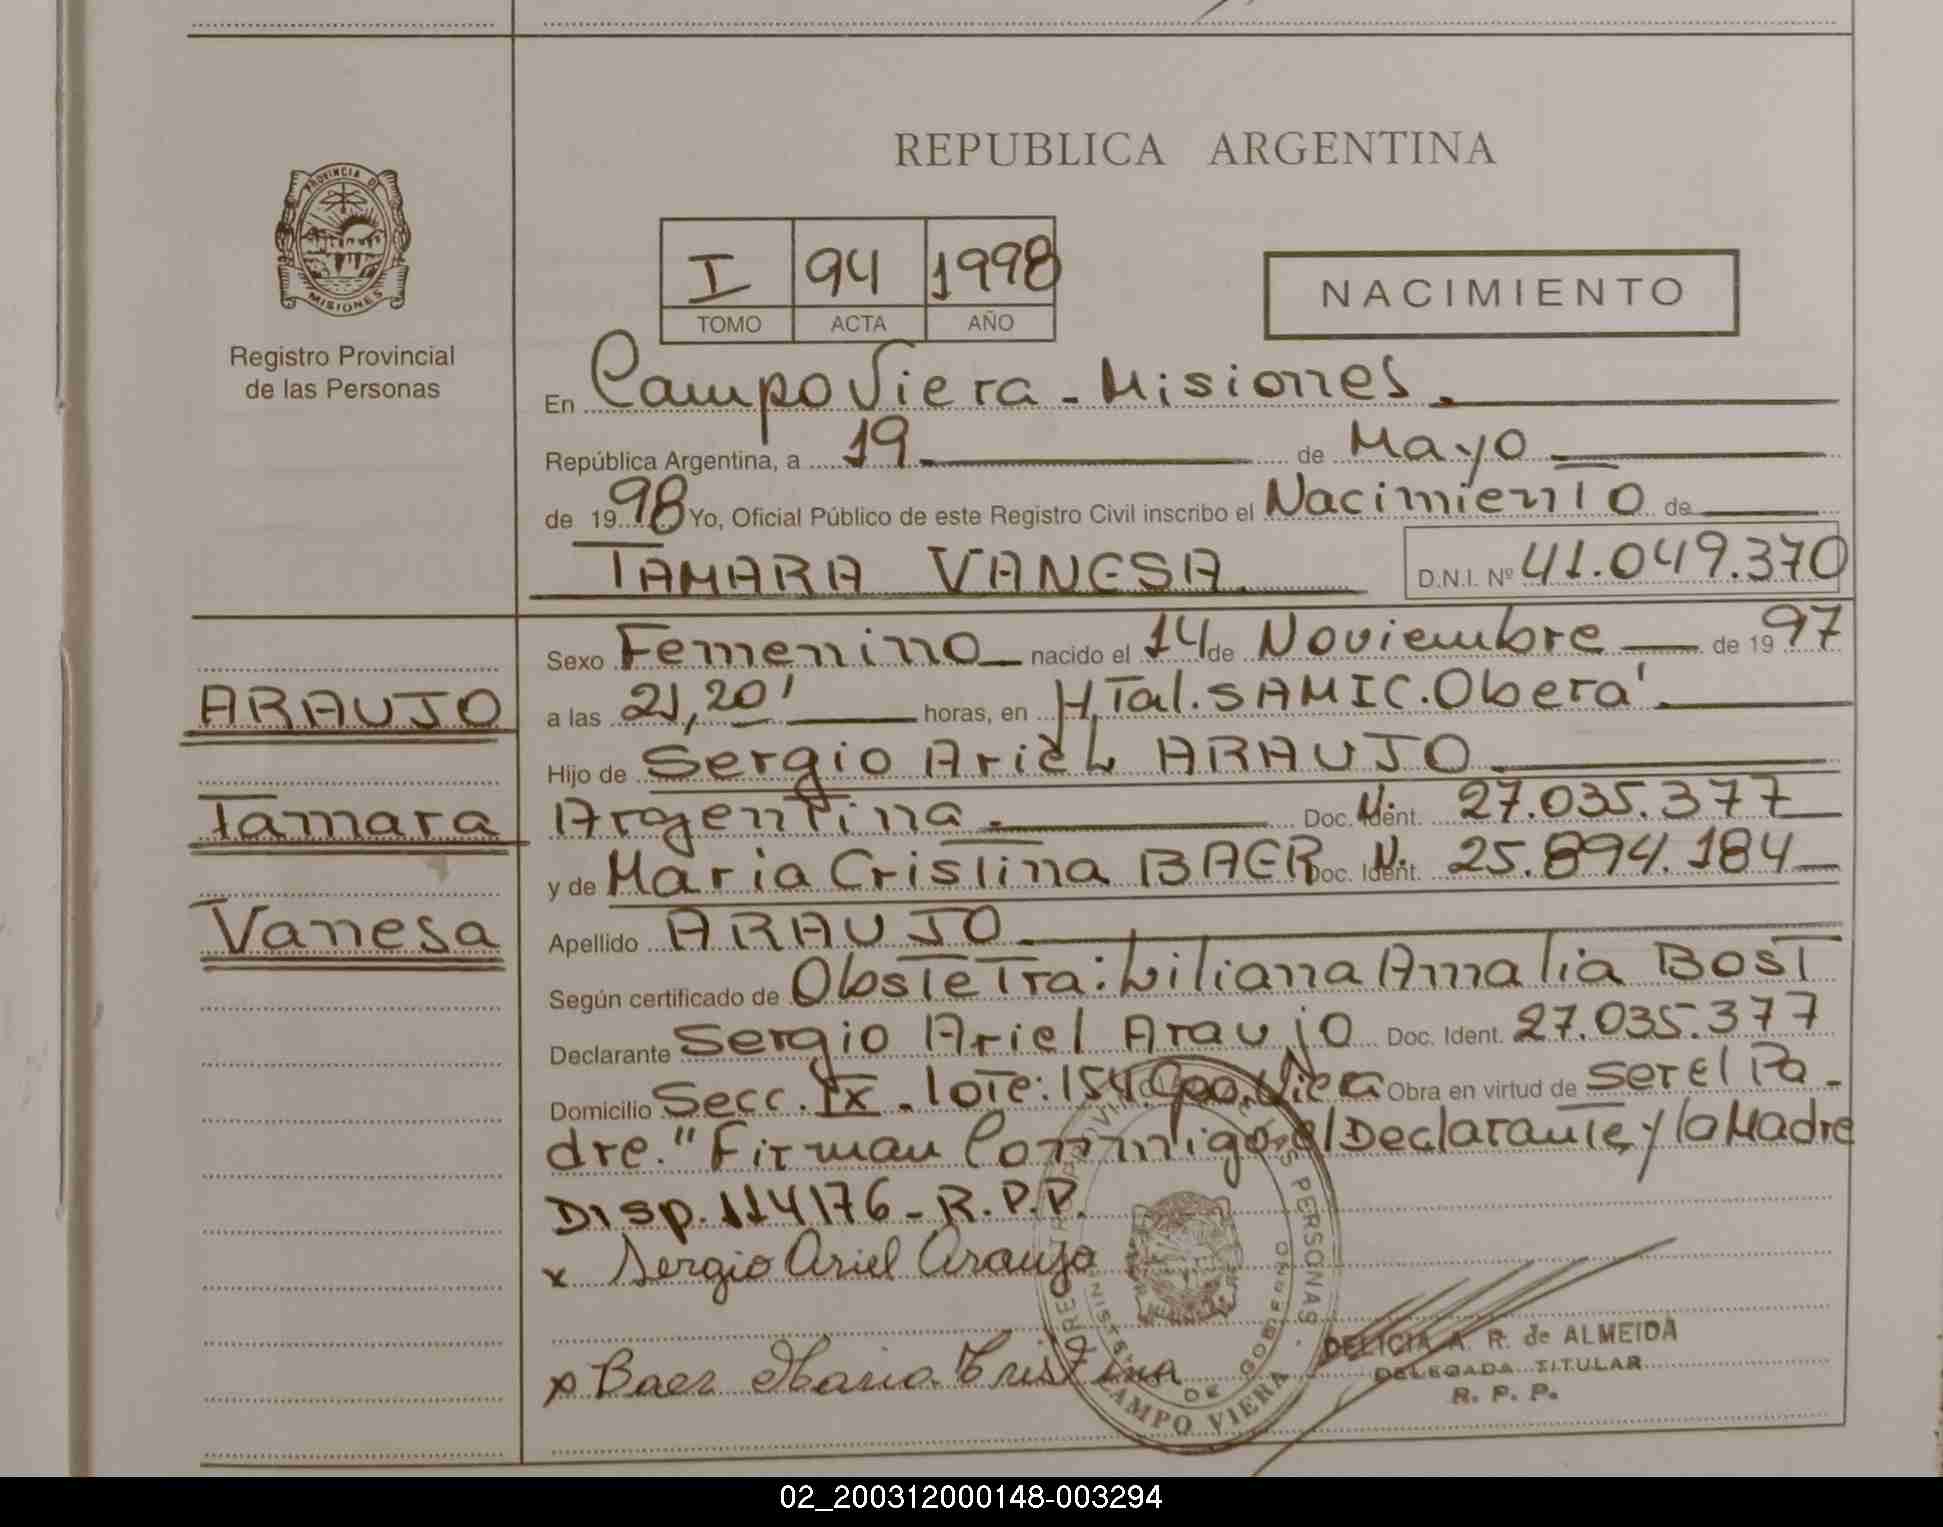 REPUBLICA ARGENTINA
PROVINCIA DE
MISIONES
Registro Provincial
de las Personas
I 94 1998
TOMO ACTA AÑO
NACIMIENTO
En Campo Viera - Misiones.
República Argentina, a 19 de Mayo
de 1998 Yo, Oficial Público de este Registro Civil inscribo el Nacimiento de
TAMARA VANESA. D.N.I. Nº 41.049.370
Sexo Femenino nacido el 14 de Noviembre de 1997
ARAUJO
a las 21,20' horas, en H,Tal. SAMIC. Oberá.
Hijo de Sergio Ariel ARAUJO
Tamara
Argentina. Doc. N. Ident. 27.035.377
y de Maria Cristina BAER Doc. N. Ident. 25.894.184
Vanesa
Apellido ARAUJO
Según certificado de Obstetra: Liliana Amalia BOST
Declarante Sergio Ariel Araujo Doc. Ident. 27.035.377
Domicilio Secc. IX - lote: 154. Cpo. Viera Obra en virtud de ser el Pa-
dre." Firman Conmigo, el Declarante, y la Madre
Disp. 114176 - R.P.P.
x Sergio Ariel Araujo
x Baer Maria Cristina
PERSONAS
DE GOBIERNO
CAMPO VIERA
DELICIA A. R. de ALMEIDA
DELEGADA TITULAR
R. P. P.
02_200312000148-003294